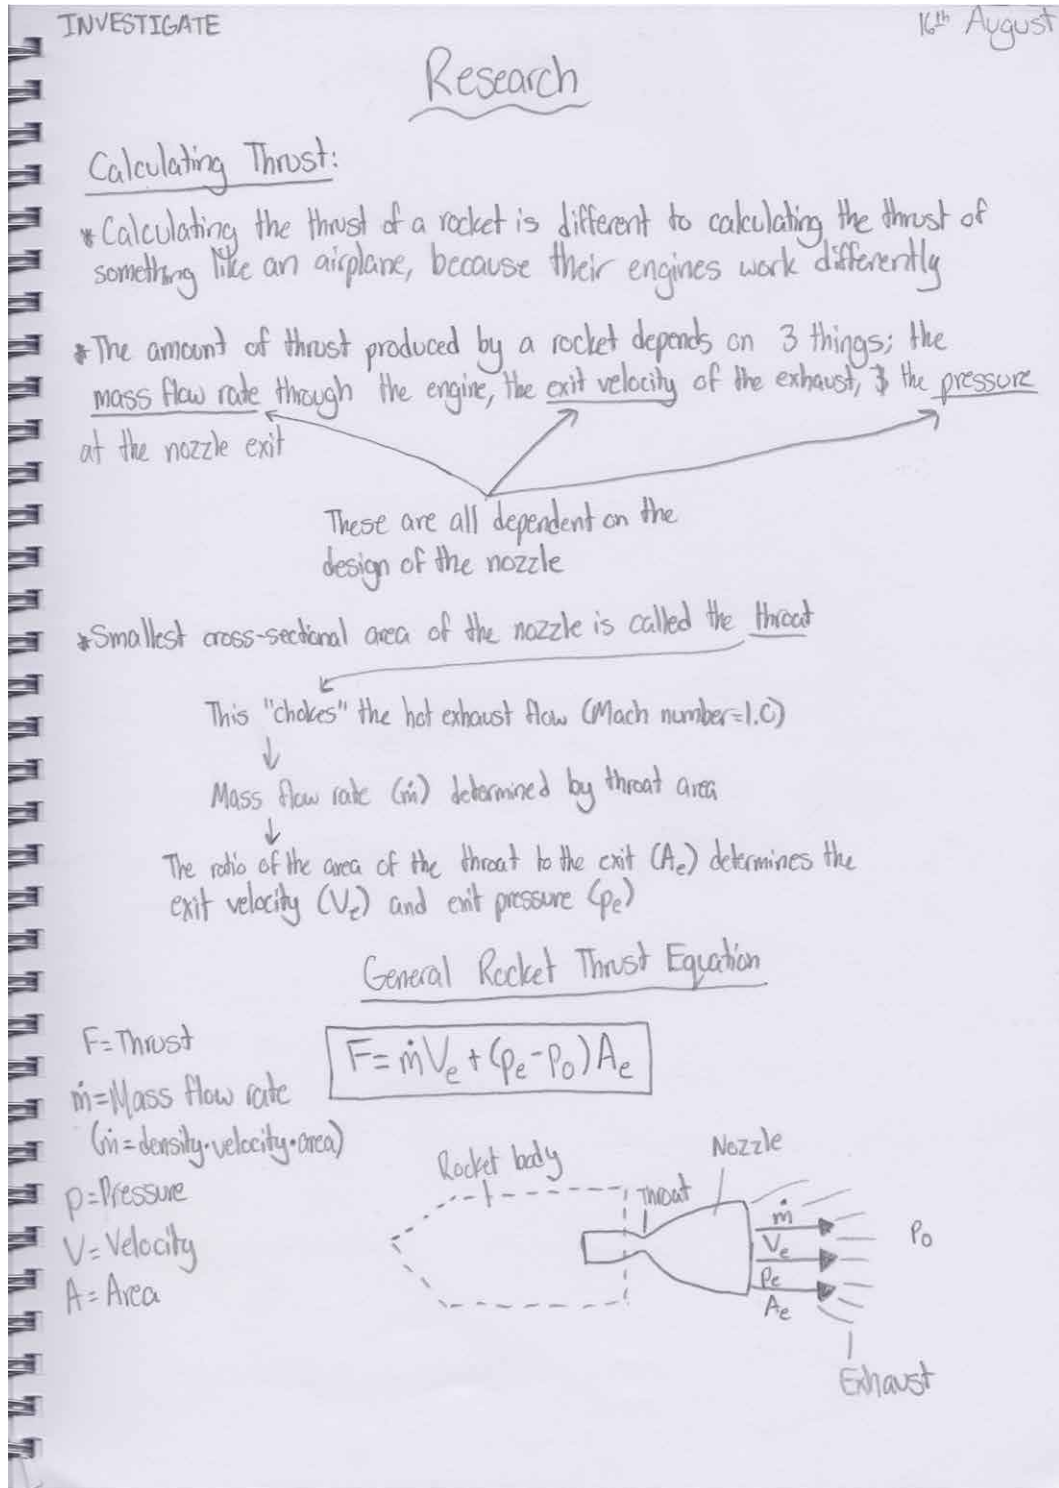 INVESTIGATE
16th August
Research
Calculating Thrust:
*Calculating the thrust of a rocket is different to calculating the thrust of
something like an airplane, because their engines work differently
*The amount of thrust produced by a rocket depends on 3 things; the
mass flow rate through the engine, the exit velocity of the exhaust, & the pressure
at the nozzle exit
These are all dependent on the
design of the nozzle
*Smallest cross-sectional area of the nozzle is called the throat
This "chokes" the hot exhaust flow (Mach number=1.0)
↓
Mass flow rate (ṁ) determined by throat area
↓
The ratio of the area of the throat to the exit (Ae) determines the
exit velocity (Ve) and exit pressure (pe)
General Rocket Thrust Equation
F=Thrust
F=ṁVe+(pe-p0)Ae
ṁ=Mass flow rate
(ṁ=density·velocity·area)
p=Pressure
V=Velocity
A=Area
Rocket body
Throat
Nozzle
ṁ
Ve
pe
Ae
p0
Exhaust